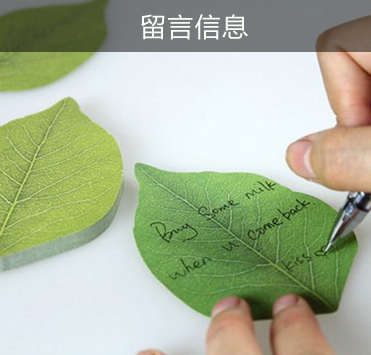 留言信息
Buy some milk
when u comeback.
kiss